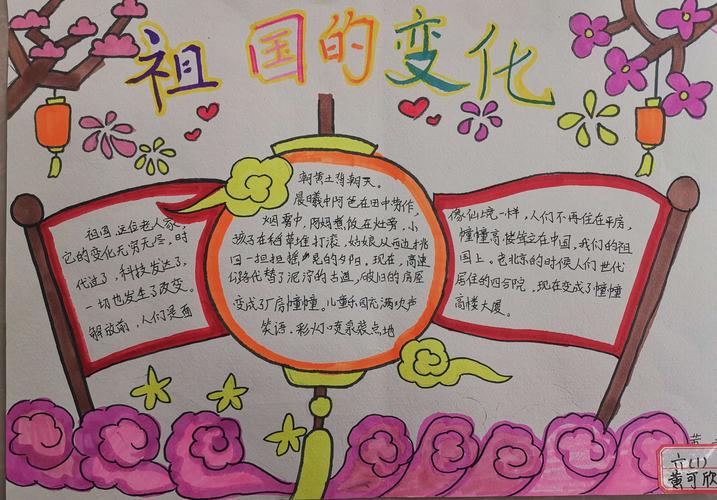 祖国的变化
祖国,这位老人家,
它的变化无穷无尽,时
代过了,科技发达了,
一切也发生了改变。
解放前,人们是面
朝黄土背朝天。
晨曦中阿爸在田中劳作,
烟雾中,阿妈煮饭在灶旁,小
孩子在稻草堆打滚,姑娘从西边挑
回一担担摇晃的夕阳,现在,高速
公路代替了泥泞的古道,破旧的房屋
变成了厂房幢幢。儿童乐园充满欢声
笑语。彩灯喷泉装点地
像仙境一样,人们不再住在平房,
幢幢高楼耸立在中国,我们的祖
国上。老北京的时候人们世代
居住的四合院,现在变成了幢幢
高楼大厦。
六(1)
黄可欣